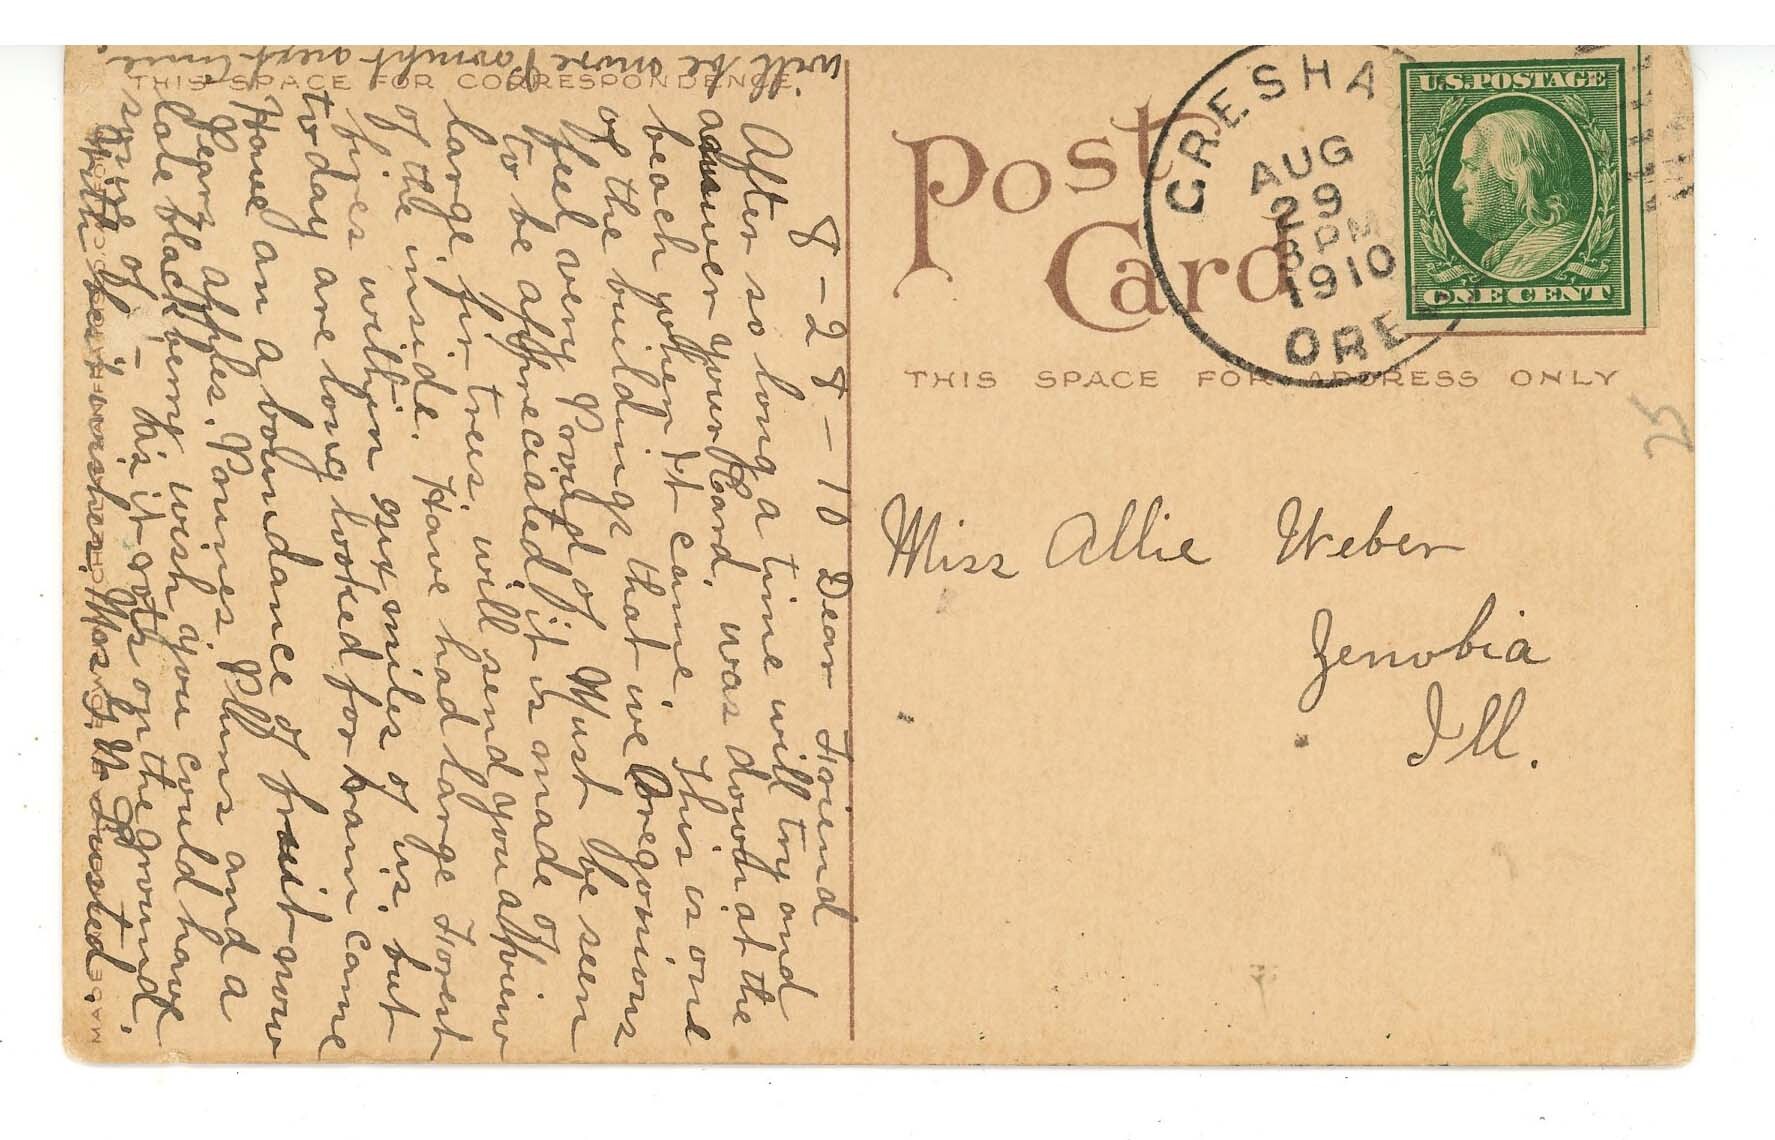 THIS SPACE FOR CORRESPONDENCE
Post
Card
THIS SPACE FOR ADDRESS ONLY
CRESHA
AUG
29
3 PM
1910
ORE
U.S.POSTAGE
ONE CENT
25
Miss Allie Weber
Zenobia
Ill.
8-28-10 Dear Friend
After so long a time will try and
answer your Card, was down at the
beach when it came. This is one
of the buildings that we Oregonions
feel very Proud of Must be seen
to be appreciated it is made of
large fir trees, will send you a view
of the inside. Have had large Forest
fires within six miles of us, but
today are long looked for rain came
Have an aboundance of fruit now
Pears apples, Prunes Plums and a
late blackberry wish you could have
some of - his it rots on the ground.
With best wishes, Mrs G. W.
will be more Promt next time.